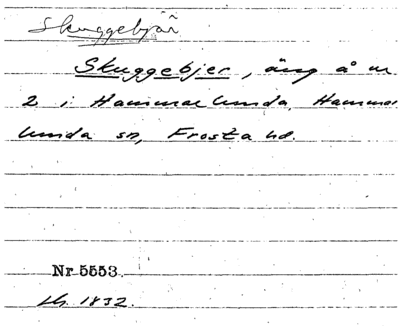 Skuggebjär
Skuggebjer, äng å nr
2 i Hammarlunda, Hammar
lunda sn, Frosta hd.
Nr 5553.
Lh. 1832.